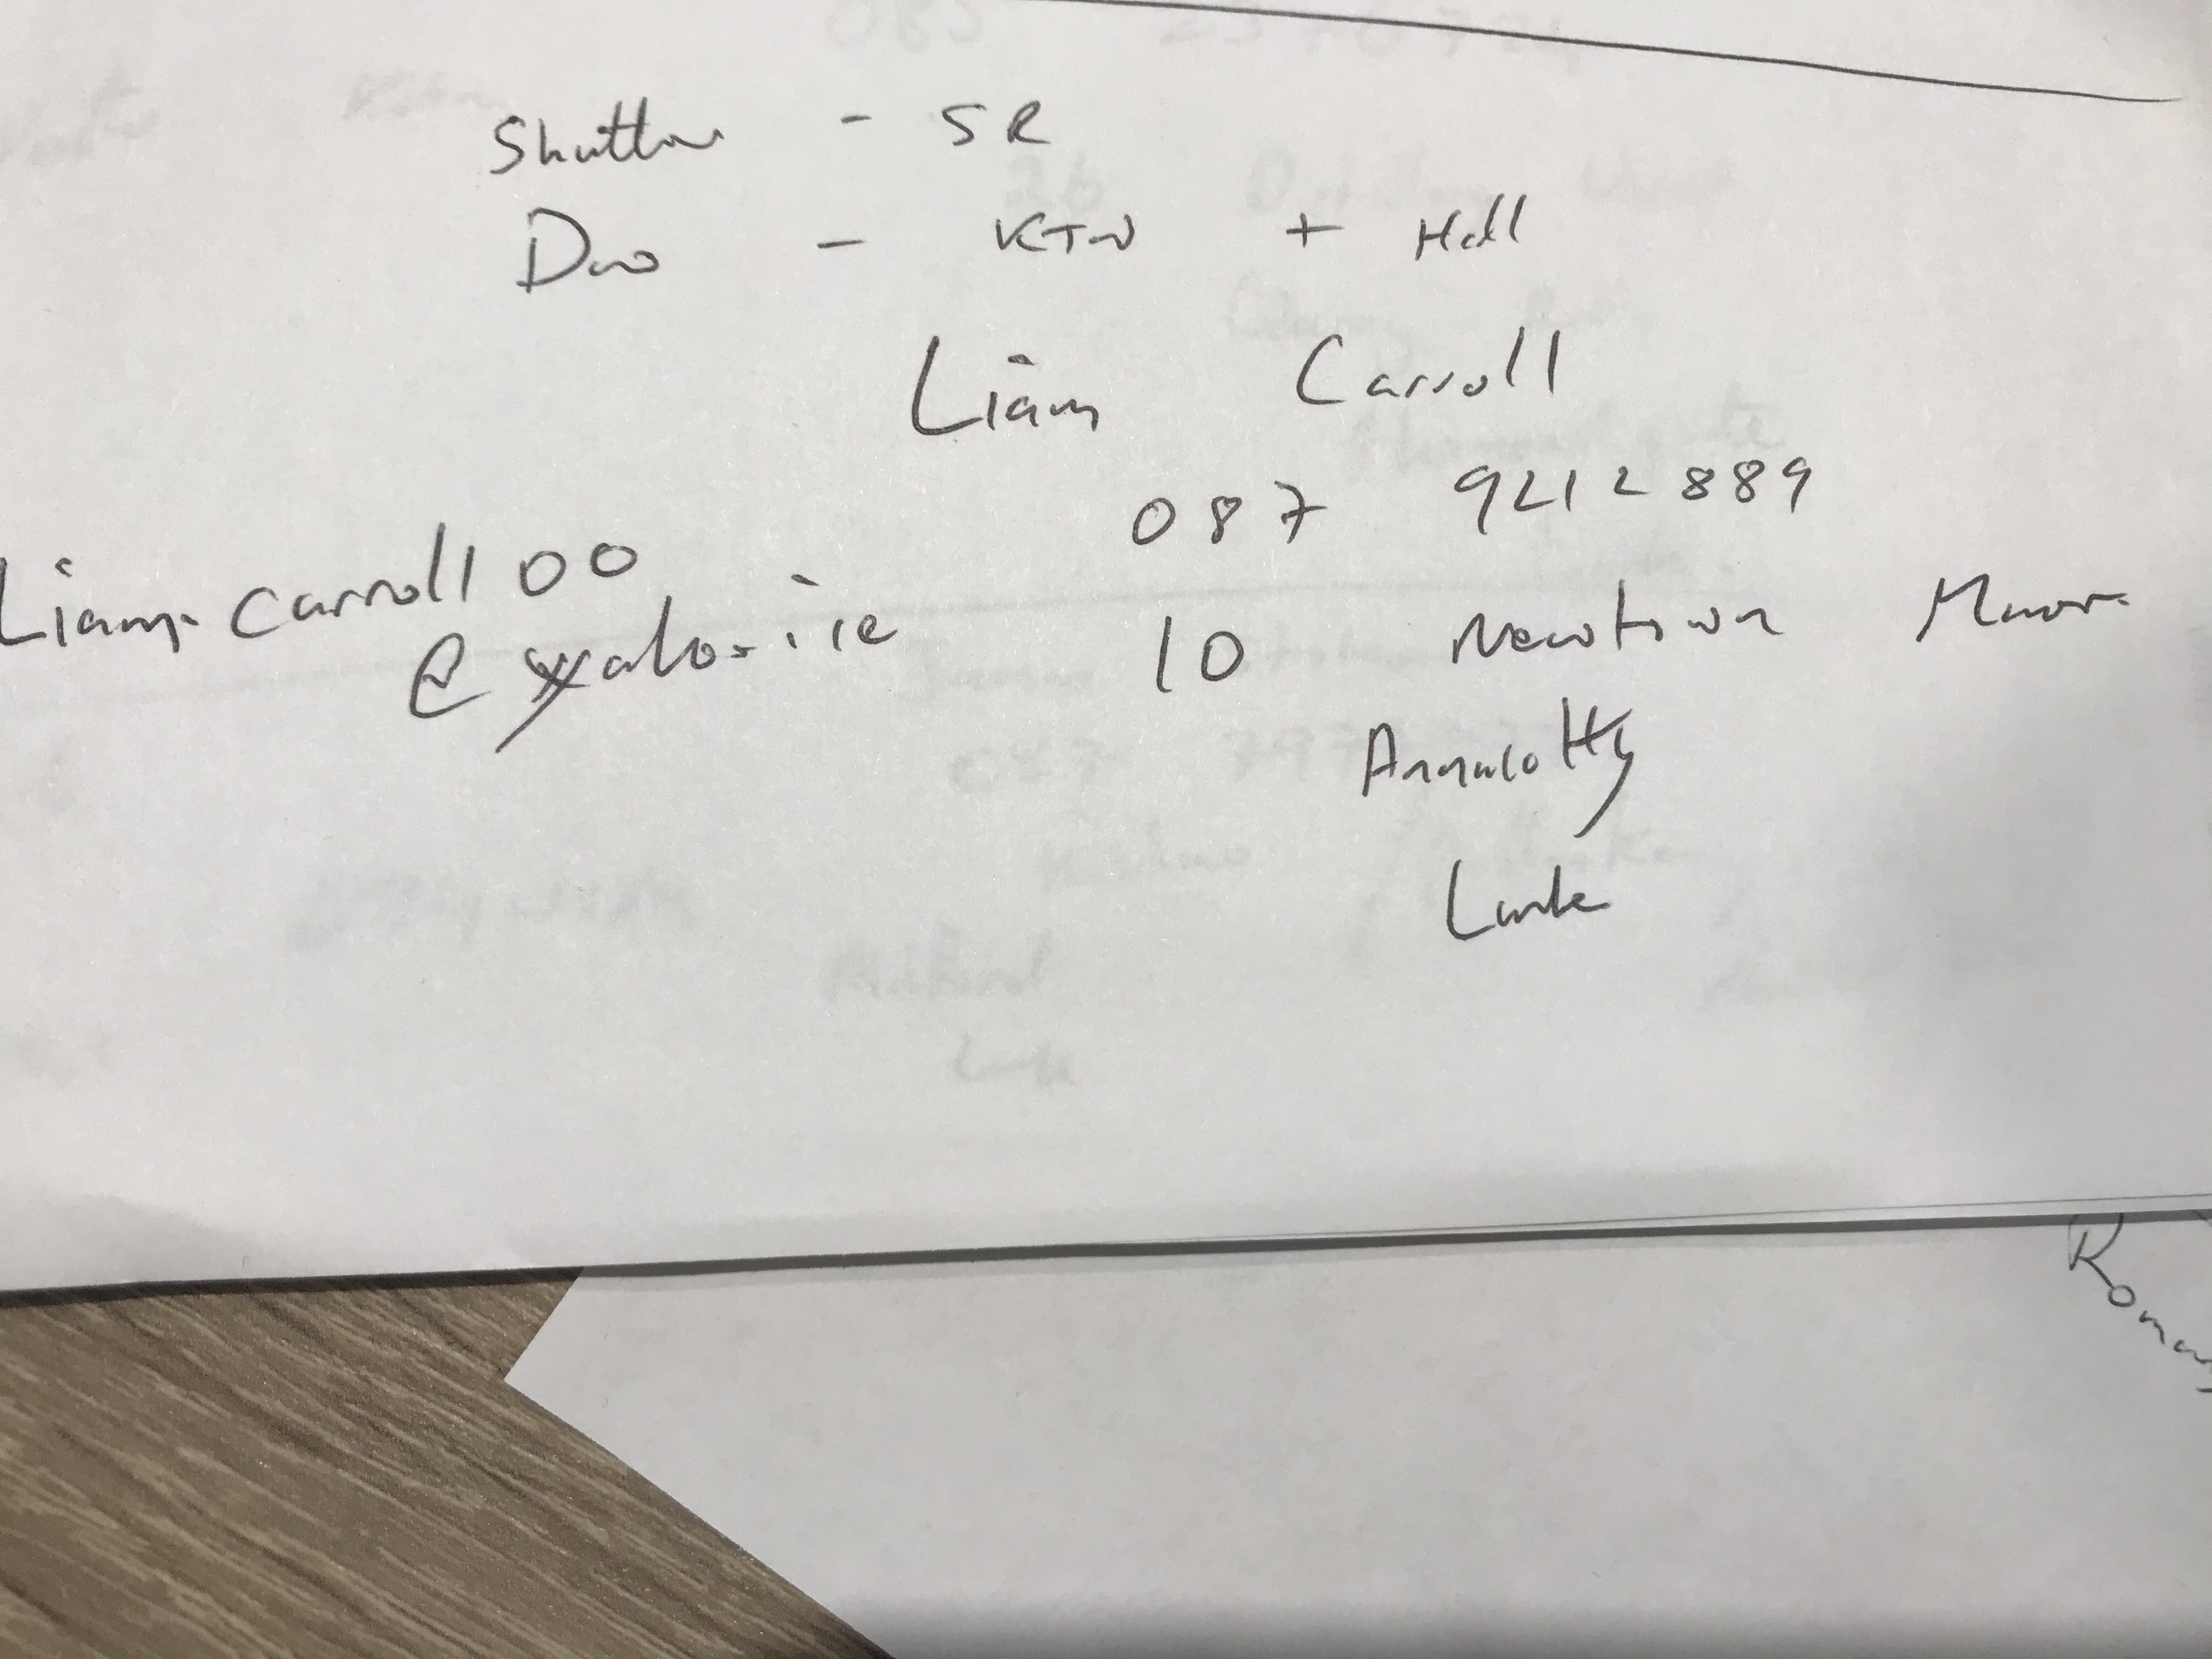 Shutters - SR
Duo - KTN + Hall
Liam Carroll
087 9212889
Liam.carroll00
@yahoo.ie
10 Newtown Manor
Annacotty
Limk
Roman